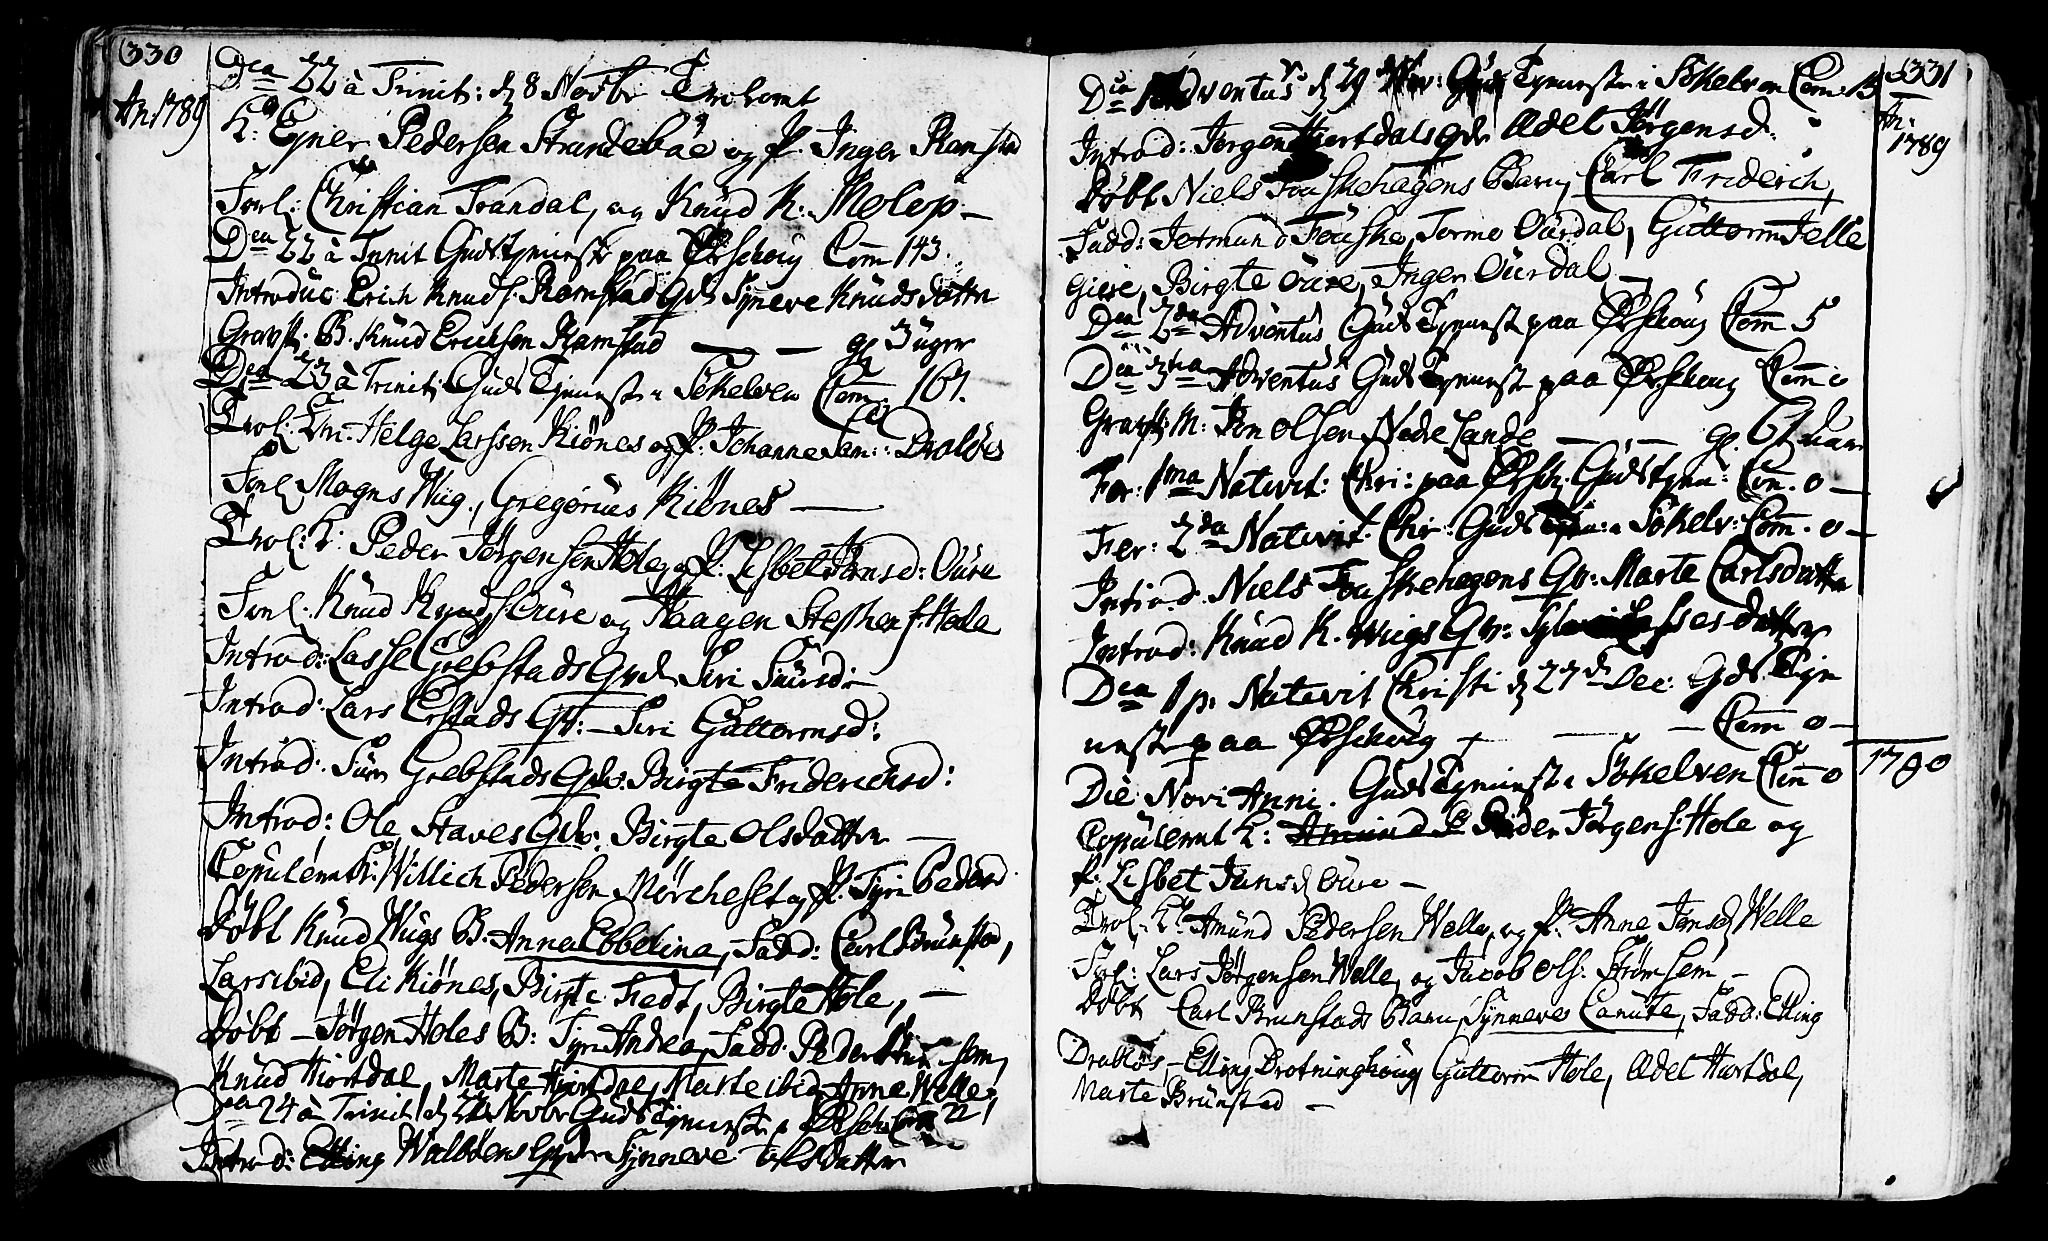 330
An 1789
Dca 22 à Trinit: d 8 Novbr Trolovet
K: Ejner Pedersen Strandebøe og P. Inger Ramstad
Forl: Christian Trandal, og Knud K: Molop –
Dca 22 à Trinit Gudstjeneste paa Ørschoug Com 143.
Introduc: Erich Knuds: Ramstad Qv Synneve Knudsdatter
Gravf: B. Knud Ericksen Ramstad — — gl 3 uger
Dca 23 à Trinit: Guds Tjeneste i Søkelven Com: 161.
Trol: Em: Helge Larssen Kiønes og P: Johanne Draløes
Forl Mogns Wiig, Gregorius Kiønes —
Trol: K: Peder Jørgensen Hole og P: Lisbet Jansd: Oure
Forl: Knud Knuds: Oure og Haagen Stephens: Hole
Introd: Lasse Grebstads Qvd Siri Siursd: –
Introd: Lars Erstads Qv: – Siri Guttormsd:
Introd: Siur Grebstads Qv: Birgte Friderichsd:
Introd: Ole Staves Qv: Birgte Olsdatter —
Copulerit K: Willich Pedersen Mørcheset og P: Gyri Pedersd
Døbt Knud Wiigs B: Anna Ebbelina, Fadd: Carl Brunstad,
Lars ibid, Eli Kiønes, Birgte Tredt, Birgte Hole, –
Døbt – Jørgen Holes B: Gyri Andrea, Fadd: Peder Strømsem,
Knud Hiortdal, Marte Hjortdal, Marte ibid, Anne Welle,
Dca 24 à Trinit: d 22 Novbr Guds Tjeneste i Ørsch: Com 22
Introd: Elling Walbøens Qv Synneve Olsdatter
331
An:
1789
Dca 1 Adventus d 29 Nov: Guds Tjeneste i Søkelven Com: 13
Introd: Jørgen Hiortdals Qv Adel Jørgensd:
Døbt Niels Fouskehagens Barn, Carl Friderich,
Fadd: Jetmund Fouske, Tormo Ourdal, Guttorm Jelle
Giere, Birgte Oure, Inger Ourdal —
Dca 2da Adventus Guds Tjenest paa Ørschoug Com 5
Dca 3tia Adventus Guds Tjenest paa Ørschoug Com 0
Gravf: M: Jon Olsen Nedre Lande — — gl. 61 Aar
Fer: 1ma Nativit: Chri: paa Ørsch: Gudstjen: Com. 0 —
Fer: 2da Nativit: Chr: Guds Tjen: i Søkelv: Com. 0 –
Introd: Niels Fouskehagens Qv: Marte Carlsdatter
Introd: Knud K. Wiigs Qv: Lassesdatter
Dca 1 p. Nativit Christi d 27 d Dec: Gds Tjen
neste paa Ørschoug — — Com 0 –
1790
Die Novi Anni. Guds Tjeneste i Søkelven Com 0
Copulerit K: Peder Jørgens: Hole og
P: Lisbet Jansd Oure –
Trol: K: Amund Pedersen Welle, og P: Anne Jonsd Welle
Forl: Lars Jørgensen Welle, og Jacob Ols: Strømsem –
Døbt Carl Brunstads Barn, Synneves Canute, Fadd: Elling
Draløs – Elling Drotninghoug, Guttorm Hole, Adel Hiortdal,
Marte Brunstad –